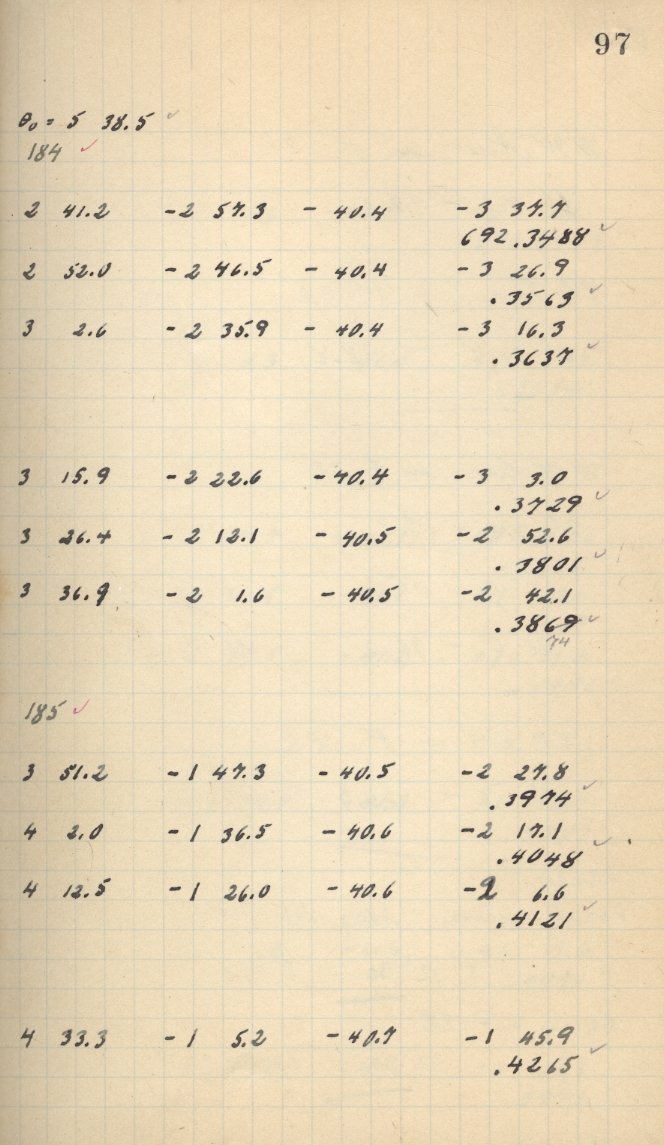 97
θ₀ = 5 38.5 ✓
184 ✓
2 41.2 -2 57.3 - 40.4 -3 37.7
692.3488 ✓
2 52.0 -2 46.5 - 40.4 -3 26.9
.3563 ✓
3 2.6 -2 35.9 - 40.4 -3 16.3
.3637 ✓
3 15.9 -2 22.6 -40.4 -3 3.0
.3729 ✓
3 26.4 -2 12.1 - 40.5 -2 52.6
.3801 ✓
3 36.9 -2 1.6 - 40.5 -2 42.1
.3869 ✓
74
185 ✓
3 51.2 -1 47.3 - 40.5 -2 27.8
.3974 ✓
4 2.0 -1 36.5 - 40.6 -2 17.1
.4048 ✓
4 12.5 -1 26.0 - 40.6 -2 6.6
.4121 ✓
4 33.3 -1 5.2 - 40.7 -1 45.9
.4265 ✓